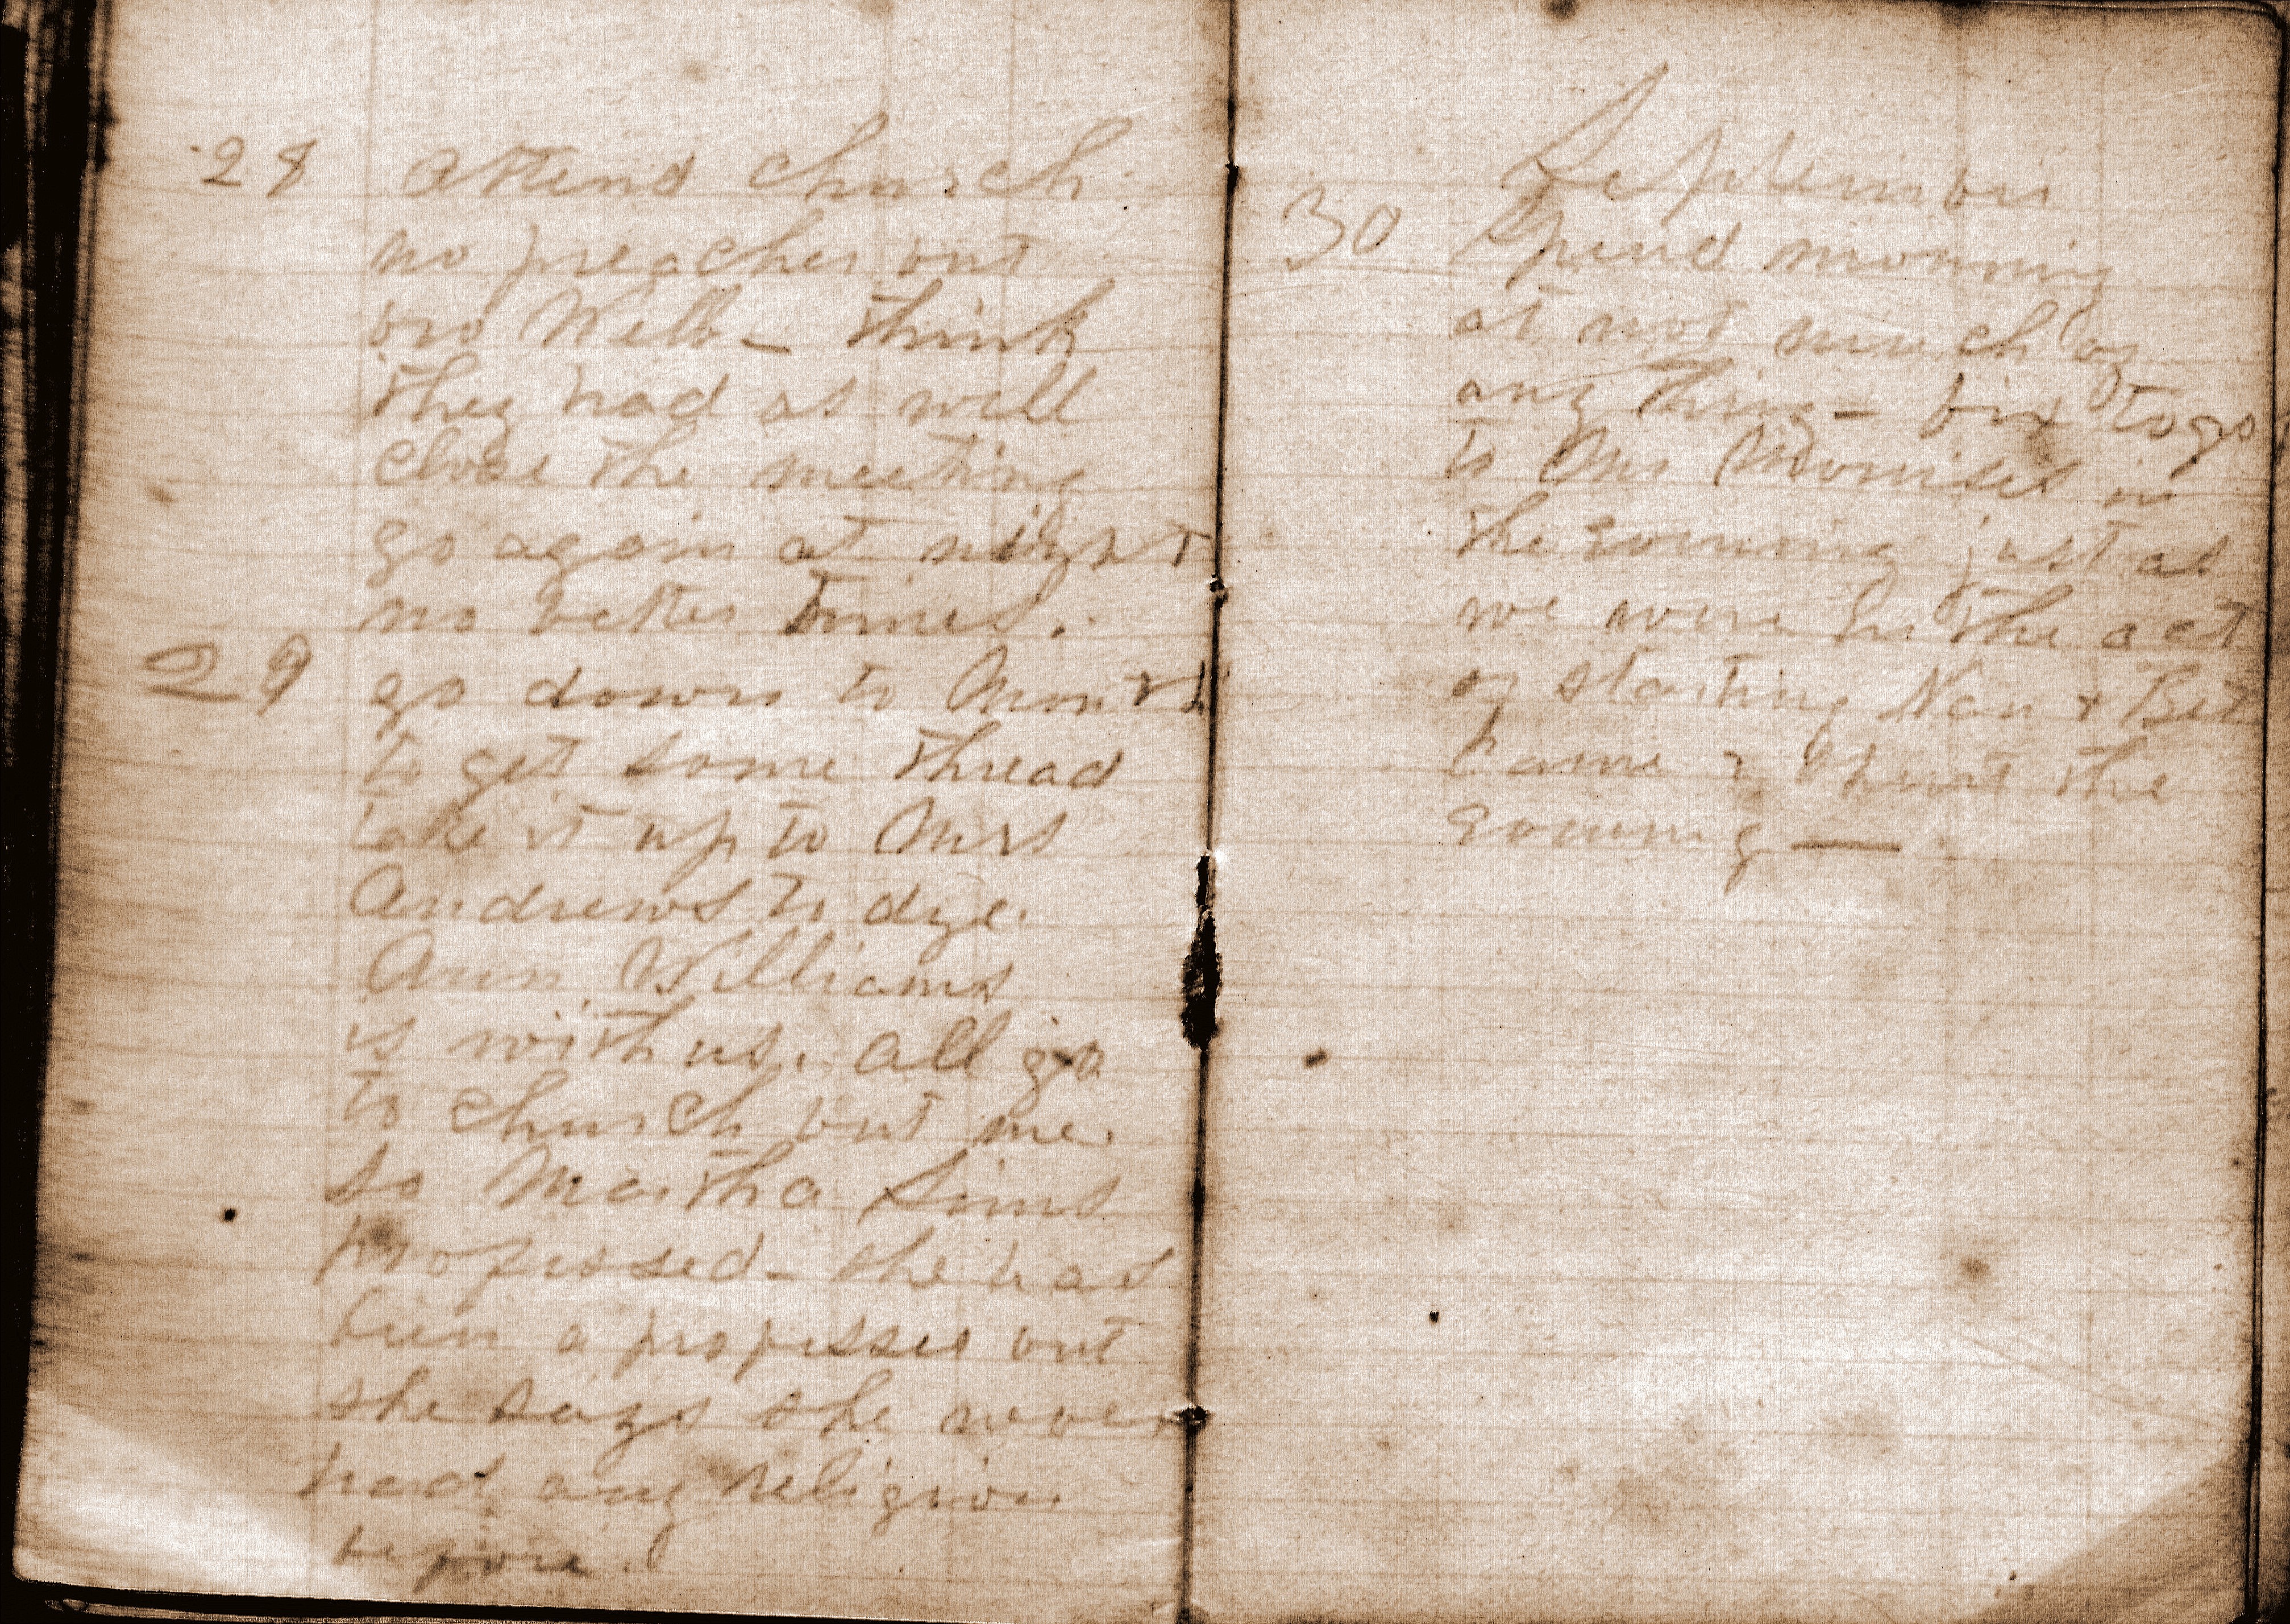 28 Attend church
no preacher but
bro Webb - think
they had as well
close the meeting
go again at night
no better times.
29 go down to
to get some thread
take it up to Mrs
Andrews to dye.
Ann Williams
is with us. all go
to church but me.
so Martha Sims
professed - she has
been a professer but
she says she never
had any religion
before.
September
30 Spend morning
at not much of
any thing - fix to go
to Mr in
the evening just as
we were in the act
of starting Nan & Bet
came & spent the
evening —